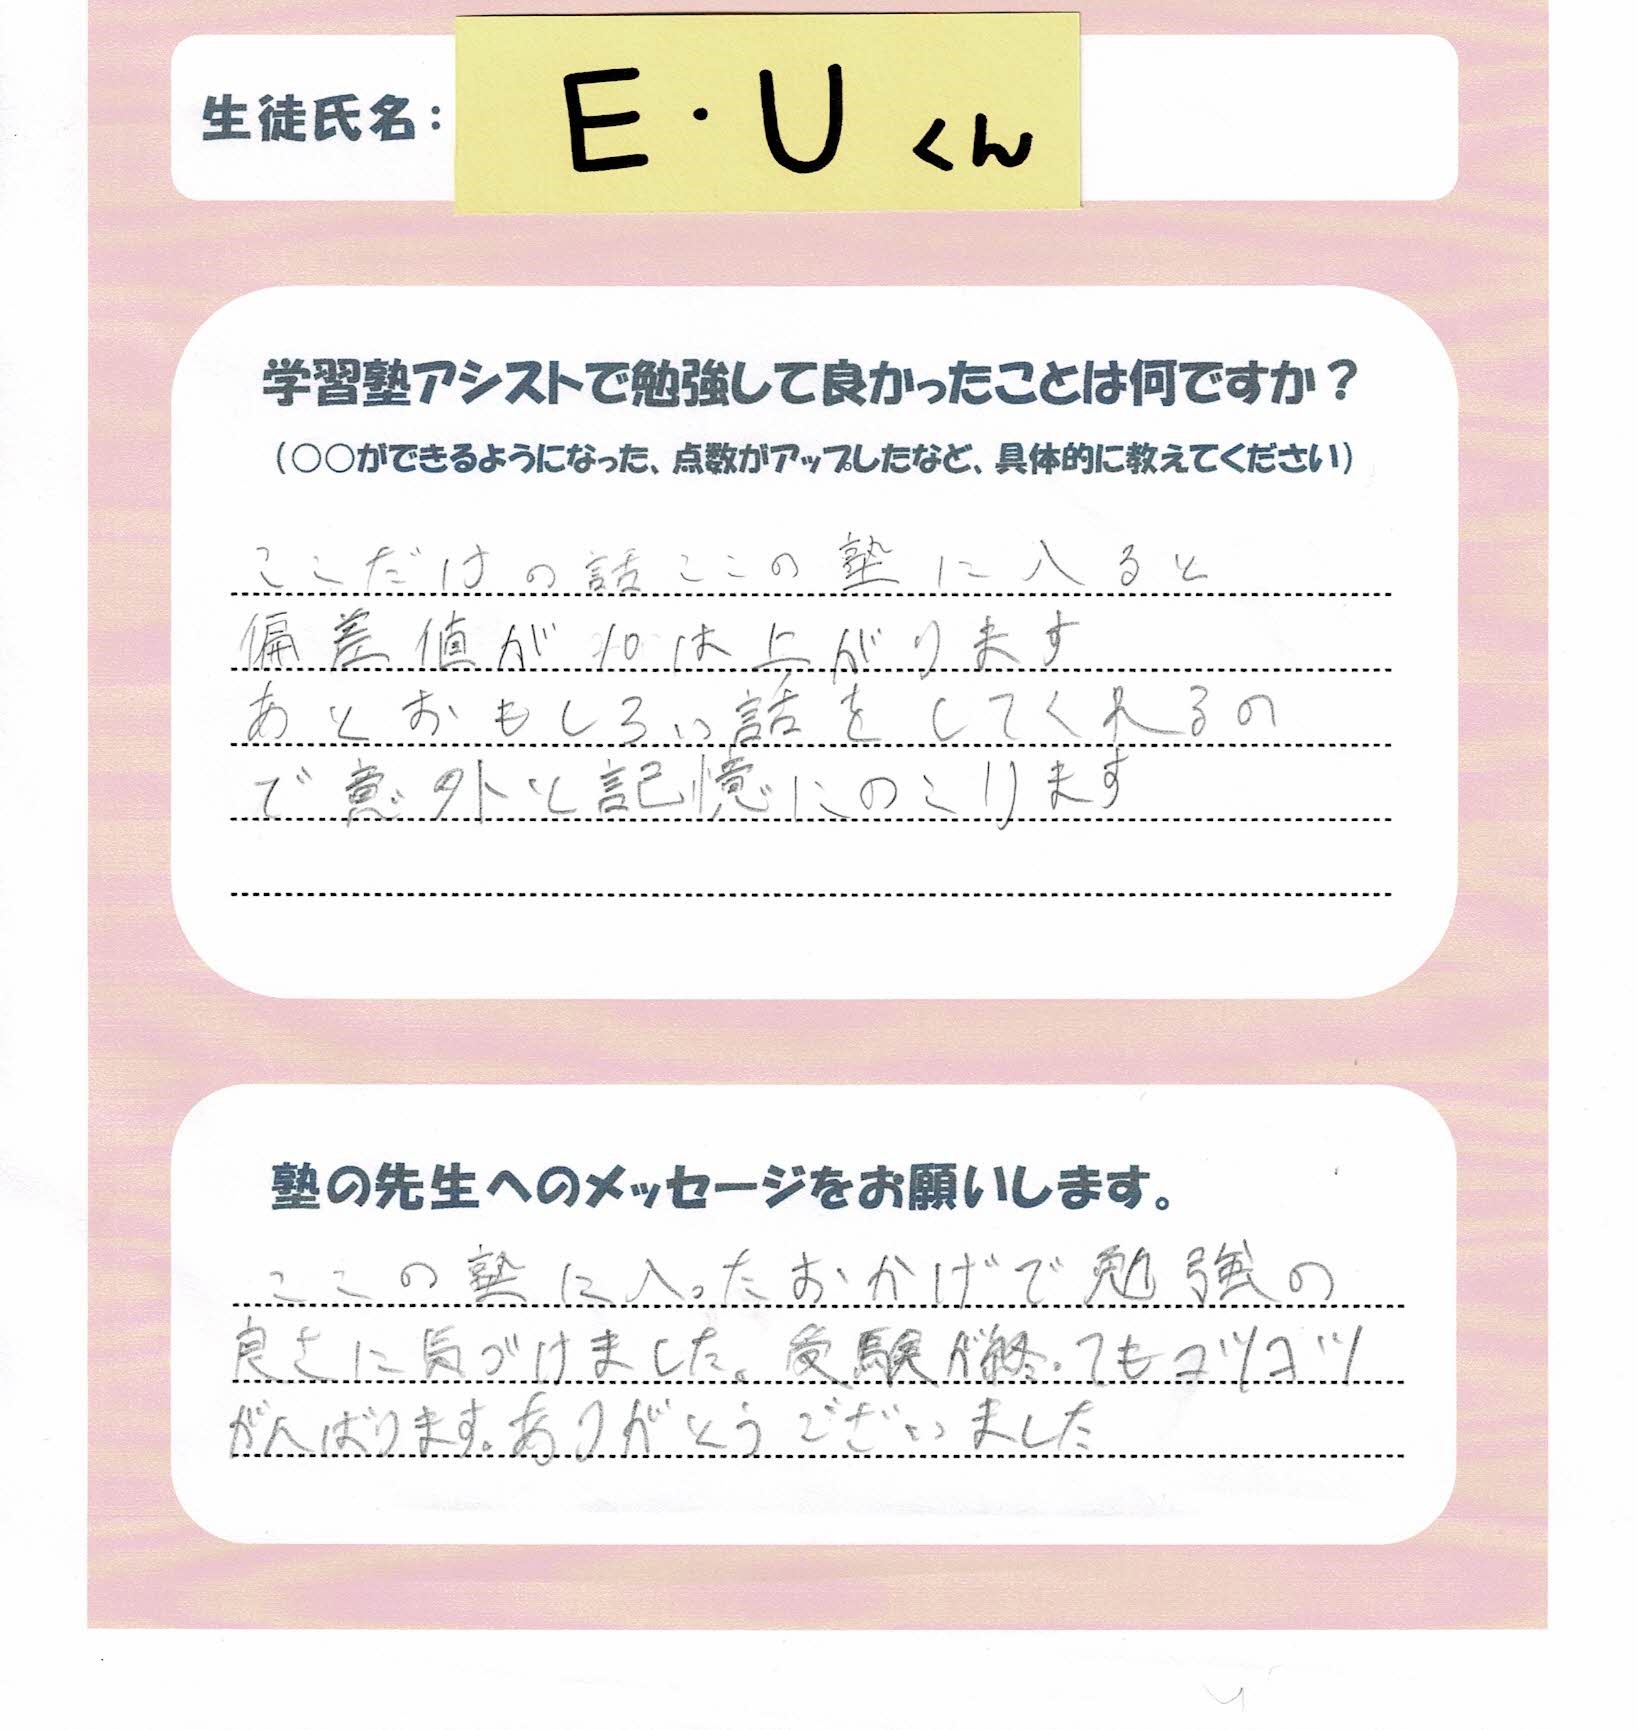 生徒氏名：
E・Uくん
学習塾アシストで勉強して良かったことは何ですか？
（○○ができるようになった、点数がアップしたなど、具体的に教えてください）
ここだけの話ここの塾に入ると
偏差値が10は上がります
あとおもしろい話をしてくれるの
で意外と記憶にのこります
塾の先生へのメッセージをお願いします。
ここの塾に入ったおかげで勉強の
良さに気づけました。受験が終ってもコツコツ
がんばります。ありがとうございました